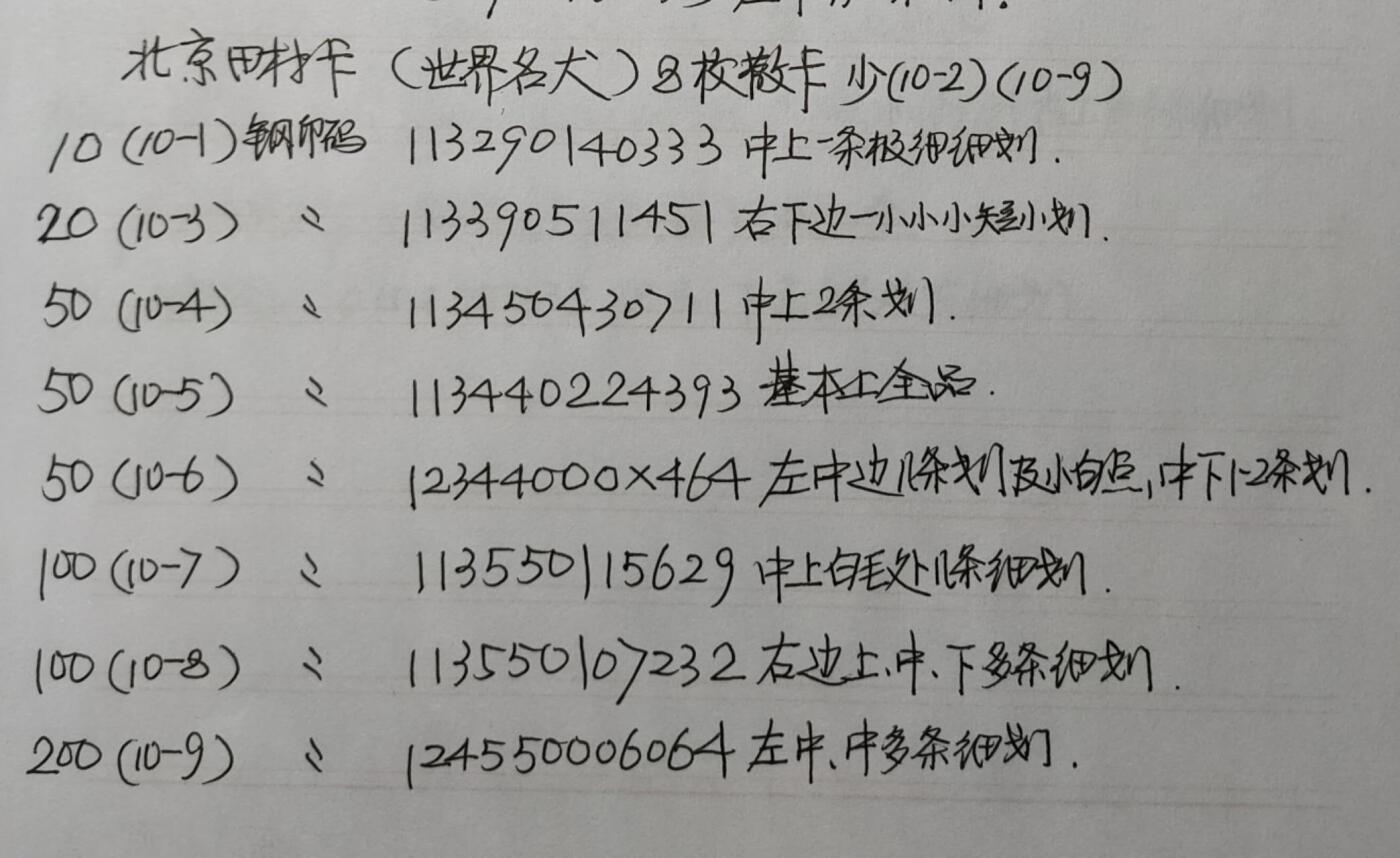 北京田村卡（世界名犬）8枚散卡 少(10-2)(10-9)
10 (10-1) 钢印码 113290140333 中上一条极细细划.
20 (10-3) 〃 113390511451 右下边一小小小短小划.
50 (10-4) 〃 113450430711 中上2条划.
50 (10-5) 〃 113440224393 基本上全品.
50 (10-6) 〃 12344000×464 左中边几条划及小白点,中下1-2条划.
100 (10-7) 〃 113550115629 中上白毛处几条细划.
100 (10-8) 〃 113550107232 右边上、中、下多条细划.
200 (10-9) 〃 124550006064 左中、中多条细划.